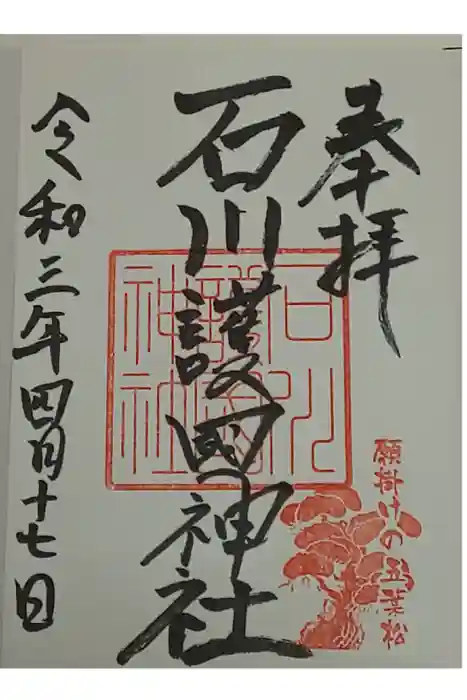 奉拝
石川護國神社
石川護國神社
願掛けの五葉松
令和三年四月十七日